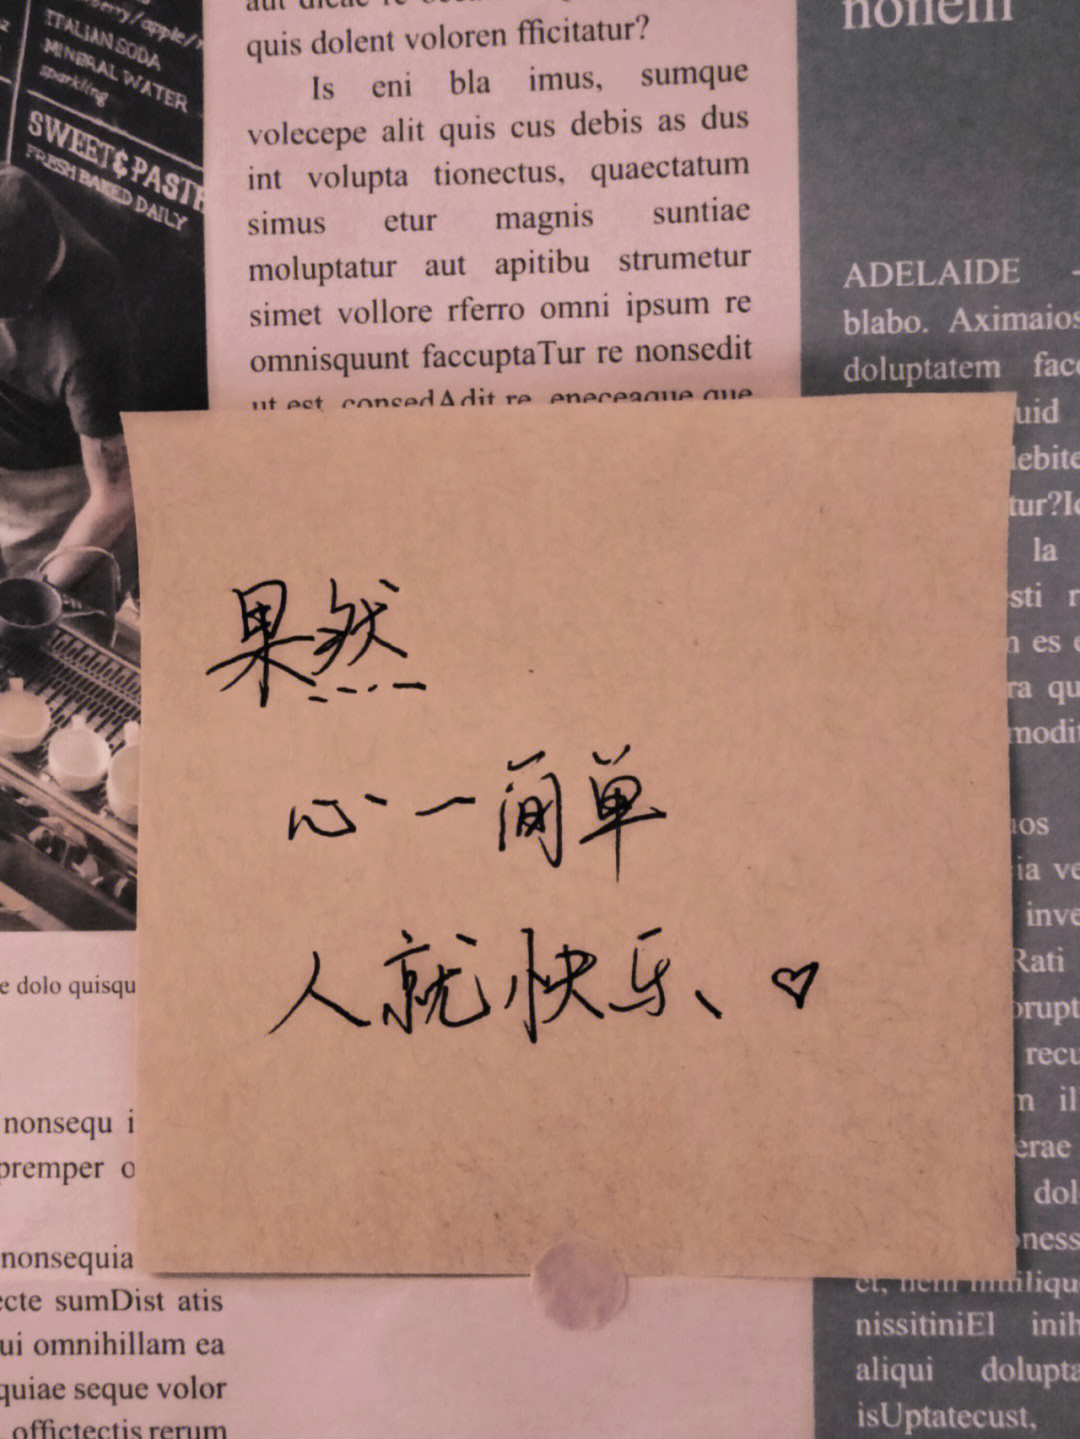 ITALIAN SODA
MINERAL WATER
sparkling
SWEET & PAST
FRESH BAKED DAILY
quis dolent voloren fficitatur?
Is eni bla imus, sumque
volecepe alit quis cus debis as dus
int volupta tionectus, quaectatum
simus etur magnis suntiae
moluptatur aut apitibu strumetur
simet vollore rferro omni ipsum re
omnisquunt faccuptaTur re nonsedit
ut est, consedAdit re, eneceaque que
nonem
ADELAIDE -
blabo. Aximaios
doluptatem facc
uid
lebite
tur?Ic
la
sti
es
ra qu
modit
ios
ia ve
inve
Rati
orupt
recu
il
erae
dol
oness
et, nem imiliqu
nissitiniEl inih
aliqui dolupta
isUptatecust,
果然
心一简单
人就快乐、♡
e dolo quisqu
nonsequ i
premper o
nonsequia
ecte sumDist atis
ui omnihillam ea
quiae seque volor
offictectis rerum